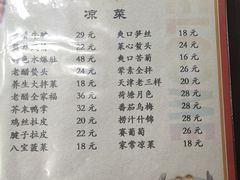 凉菜
29元
22元
水爆肚 48元
老醋蜇头 24元
养生大拌菜 18元
老醋全家福 36元
芥末鸭掌 32元
鸡丝拉皮 22元
腱子拉皮 28元
八宝菠菜 18元
爽口笋丝 18元
菜心蜇头 24元
爽口苦菊 16元
荤素全拌 26元
天津老三样 20元
荷塘月色 28元
番茄乌梅 28元
捞汁什锦 28元
赛葡萄 26元
家常凉菜 18元